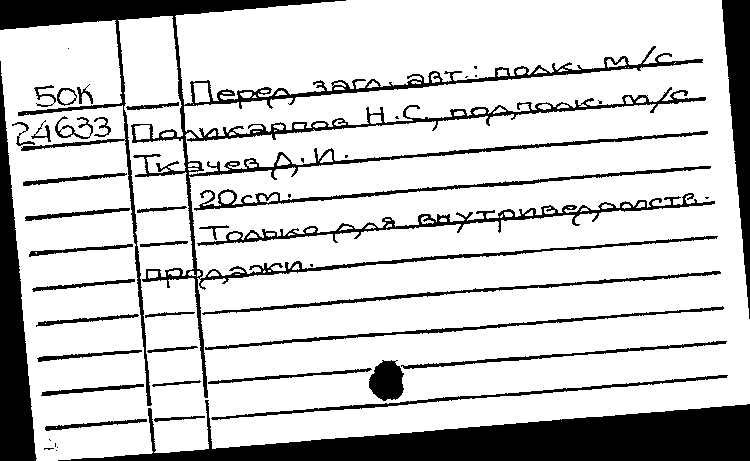 50К Перед загл. авт.: полк. м/с
24633 Поликарпов Н.С., подполк. м/с
Ткачев Д.И.
20 cm.
Только для внутриведомств.
продажи.